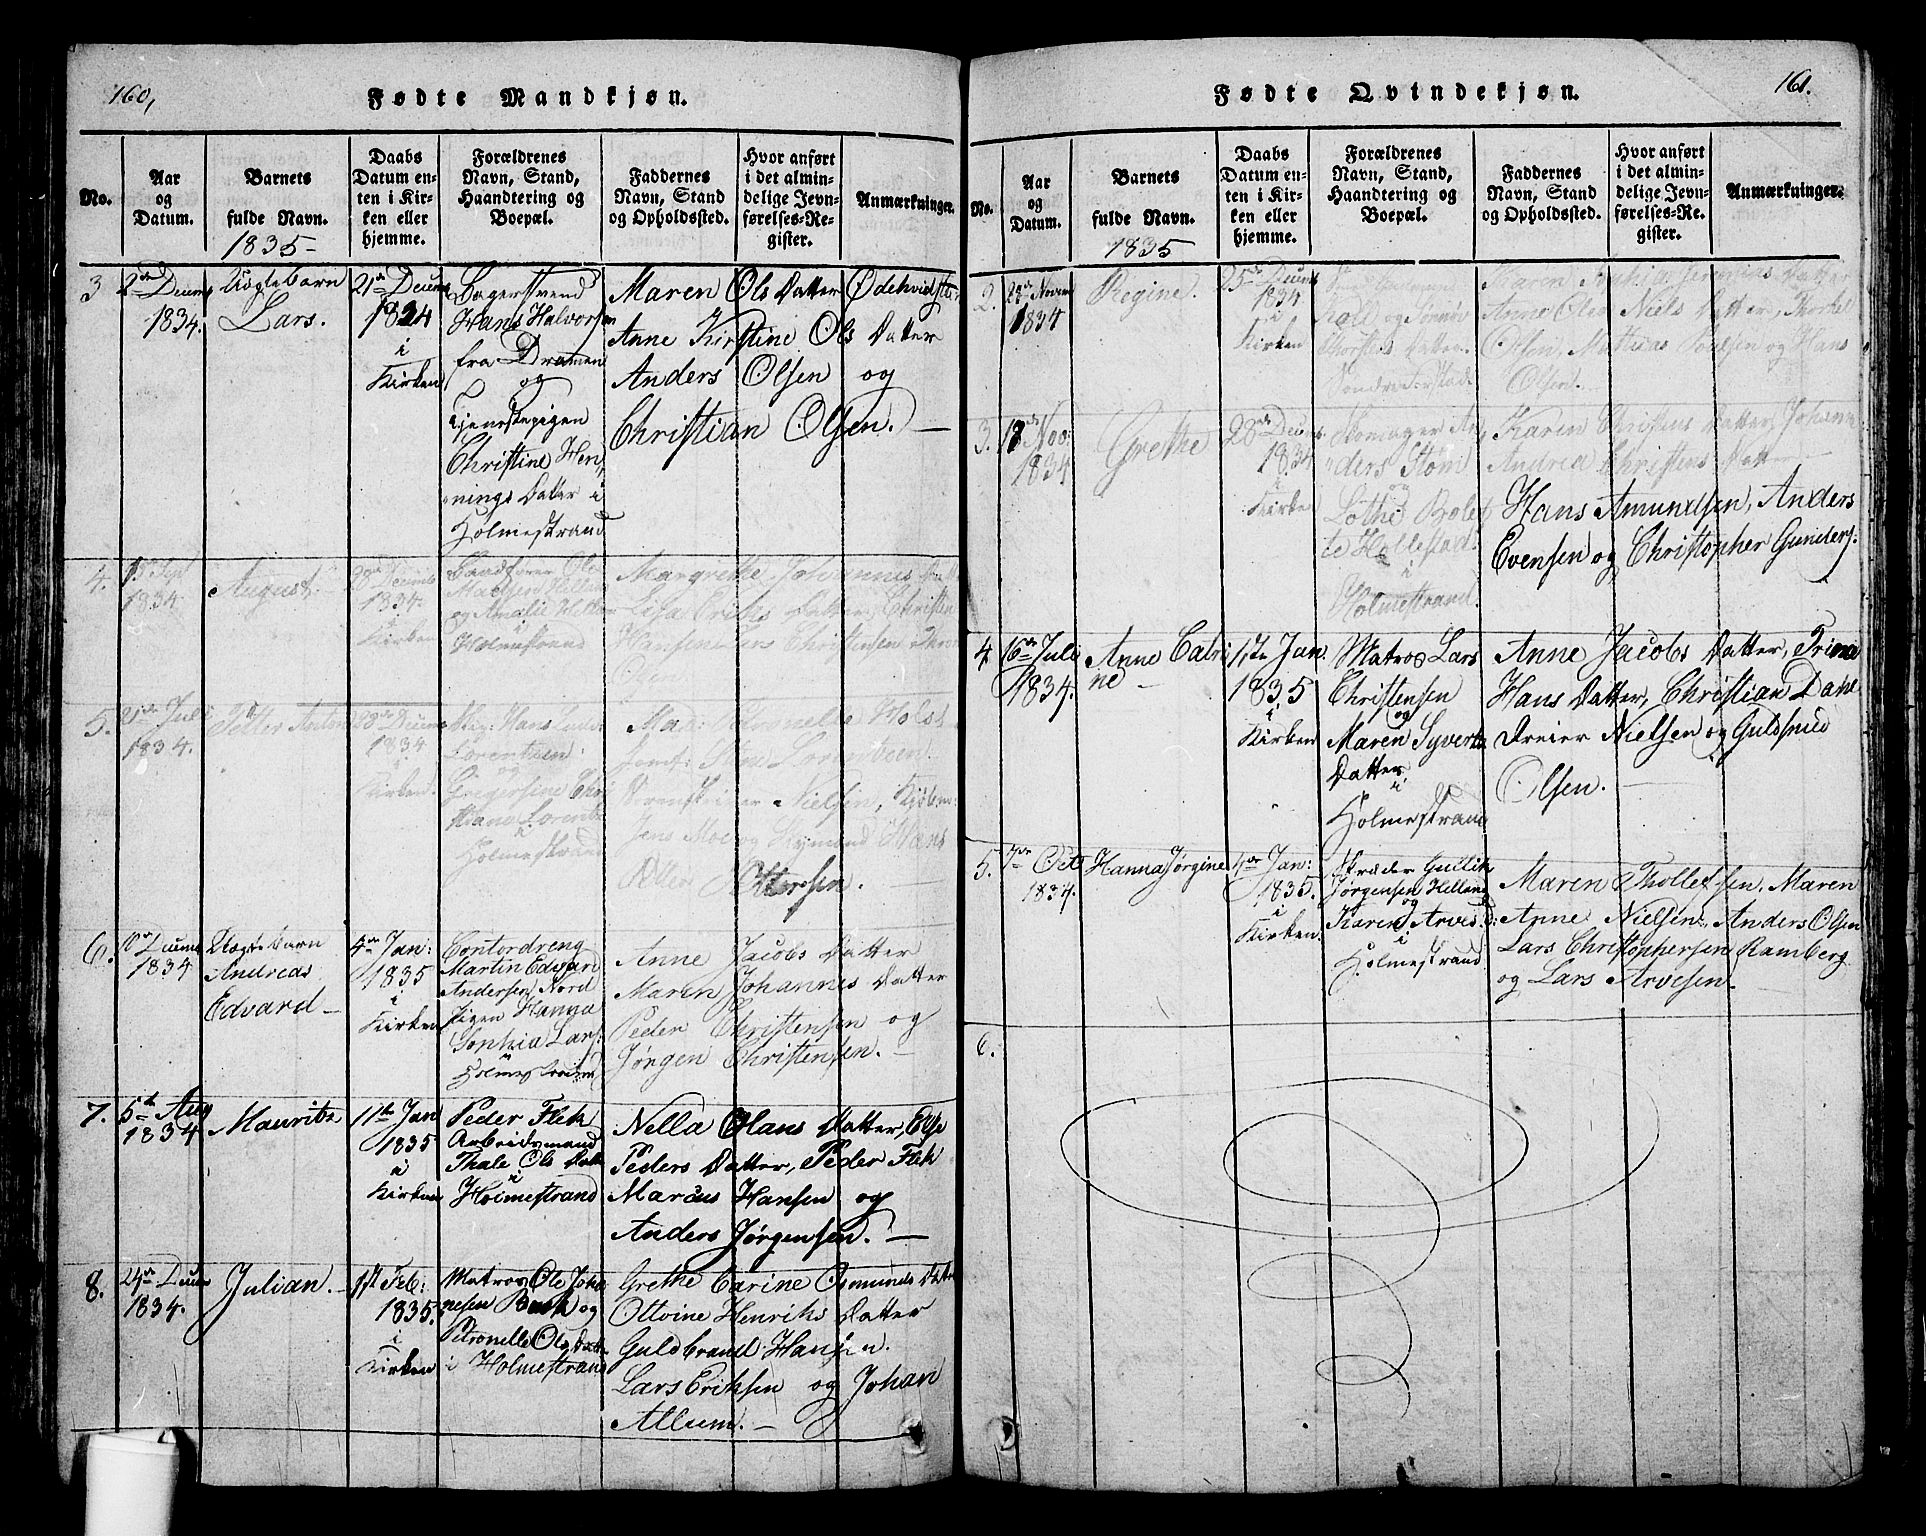 160,
Fødte Mandkjøn.
No.
Aar
og
Datum.
Barnets
fulde Navn.
1835
Daabs
Datum en-
ten i Kir-
ken eller
hjemme.
Forældrenes
Navn, Stand,
Haandtering og
Boepæl.
Faddernes
Navn, Stand
og Opholdssted.
Hvor anført
i det almin-
delige Jevn-
førelses-Re-
gister.
Anmærkninger.
3
2de Decemb
1834.
Uægte barn
Lars.
21de Decemb
1834
i
Kirken
Bagersvend
Hans Halvorsen
fra Dramen
og
Tjenestepigen
Christine Hen-
nings Datter i
Holmestrand
Maren Ols Datter
Anne Kirstine Ols Datter
Anders Olsen og
Christian Olsen. —
4.
Sept
1834
August
28de Decemb
1834.
i
Kirken
Ole
og Amalie
i
Holmestrand
Margrethe Johannes Datter
Lisa Eriks Datter, Christen
Hansen, Lars Christensen
5.
Juli
1834.
Petter Anton
28de Decemb
1834
i
Kirken.
Hans
Lorentsen
og
Gregersine Chri-
stiane Lorentz
i
Holmestrand
Mad: Petronelle Holst
Jomf: Lorentzen.
Nielsen,
Jens Moe og Rymand Hans
Petter Pettersen. —
6.
10de Decemb
1834
Uægte barn
Andreas
Edvard —
4de Jan:
1835
i
Kirken
Contordreng
Martin Edvard
Andersen Nord
Pigen Hanna
Sophia Lars:
i
Holmestrand
Anne Jacobs Datter
Maren Johannis Datter
Peder Christensen og
Jørgen Christensen. —
7.
5te Aug
1834
Mauritz
11te Jan
1835
i
Kirken
Peder Flek
Arbeidsmand
Thale Ols Datt
i
Holmestrand
Nella Olans Datter, Else
Peders Datter, Peder Flek
Marcus Hansen og
Anders Jørgensen. —
8.
24de Decem
1834.
Julian. —
1ste Feb:
1835.
i
Kirken
Matros Ole Joha
nesen Bask og
Petronelle Ols Dat
i Holmestrand
Grethe Carine Osmunds Datter
Ottvine Henriks Datter
Guldbrand Hansen.
Lars Eriksen og Johan
Allum. —
161.
Fødte Qvindekjøn.
No.
Aar
og
Datum.
Barnets
fulde Navn.
1835
Daabs
Datum en-
ten i Kir-
ken eller
hjemme.
Forældrenes
Navn, Stand,
Haandtering og
Boepæl.
Faddernes
Navn, Stand
og Opholdssted.
Hvor anført
i det almin-
delige Jevn-
førelses-Re-
gister.
Anmærkninger.
2.
Novem
1834
Regine.
25de Decemb
1834
i
Kirken
Karen Datter
Anne Olea Niels Datter, Thorkel
Olsen, Mathias Poulsen og Hans
Olsen.
3.
18de Nov:
1834
Grethe
28de Decemb.
1834
i
Kirken
Skomager An-
ders Stom
og
Lothe Bolet-
te Hollestad.
i
Holmestrand.
Karen Christens Datter, Johanne
Andrea Christens Datter —
Hans Amundsen, Anders
Evensen og Christopher Gunders:
4.
16de Juli
1834.
Anne Catri-
ne —
1ste Jan:
1835
i
Kirken
Matros Lars
Christensen
og
Maren Syverts
Datter.
i
Holmestrand
Anne Jacobs Datter, Trina
Hans Datter, Christian Dahl
Dreier Nielsen og Guldsmed
Olsen. —
5.
7de Oct
1834.
Hanna Jørgine
4de Jan:
1835.
i
Kirken.
Skræder Gullik
Jørgensen Helland
og
Karen Arves D:
i
Holmestrand
Maren Thollefsen, Maren
Anne Nielsen, Anders Olsen
Lars Christophersen Ramberg
og Lars Arvesen. —
6.